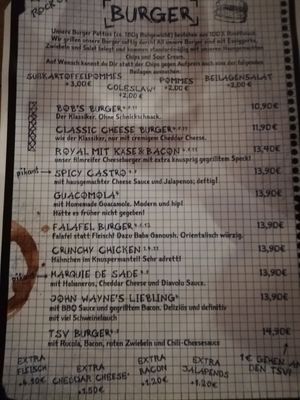 ROCK
BURGER
Unsere Burger Patties (ca. 180g Rohgewicht) bestehen aus 100% Rindfleisch.
Wir grillen unsere Burger saftig durch! All unsere Burger sind mit Essiggurke,
Zwiebeln und Salat belegt und kommen standardmäßig mit hausgemachten
Chips und Sour Cream.
Auf Wunsch kannst du Dir statt der Chips gegen Aufpreis auch von der folgenden
Beilagen aussuchen.
SÜßKARTOFFELPOMMES +3,00€
COLESLAW +2,00€
POMMES +2,00€
BEILAGENSALAT +2,00€
BOB'S BURGER 10,90€
Der Klassiker. Ohne Schnickschnack.
CLASSIC CHEESE BURGER 11,90€
wie der Klassiker, nur mit cremigem Cheddar Cheese.
ROYAL MIT KÄSE & BACON 13,40€
unser filmreifer Cheeseburger mit extra knusprig gegrilltem Speck!
pikant SPICY CASTRO 13,90€
mit hausgemachter Cheese Sauce und Jalapenos; deftig!
GUACOMOLA 13,90€
mit Homemade Guacamole. Modern und hip!
Hätte es früher nicht gegeben!
FALAFEL BURGER 13,90€
Falafel statt Fleisch! Dazu Baba Ganoush. Orientalisch würzig.
CRUNCHY CHICKEN 13,90€
Hähnchen im Knuspermantel! Sehr adrett!
pikant MARQUIE DE SADE 13,90€
mit Habaneros, Cheddar Cheese und Diavolo Sauce.
JOHN WAYNE'S LIEBLING 13,90€
mit BBQ Sauce und gegrilltem Bacon. Deliziös und definitiv
mit viel Schweinelauch
TSV BURGER 14,90€
mit Rucola, Bacon, roten Zwiebeln und Chili-Cheesesauce
EXTRA FLEISCH
EXTRA CHEDDAR CHEESE +1,50€
EXTRA BACON +1,20€
EXTRA JALAPENOS +1,20€
1€ GEHEN AN DEN TSV!